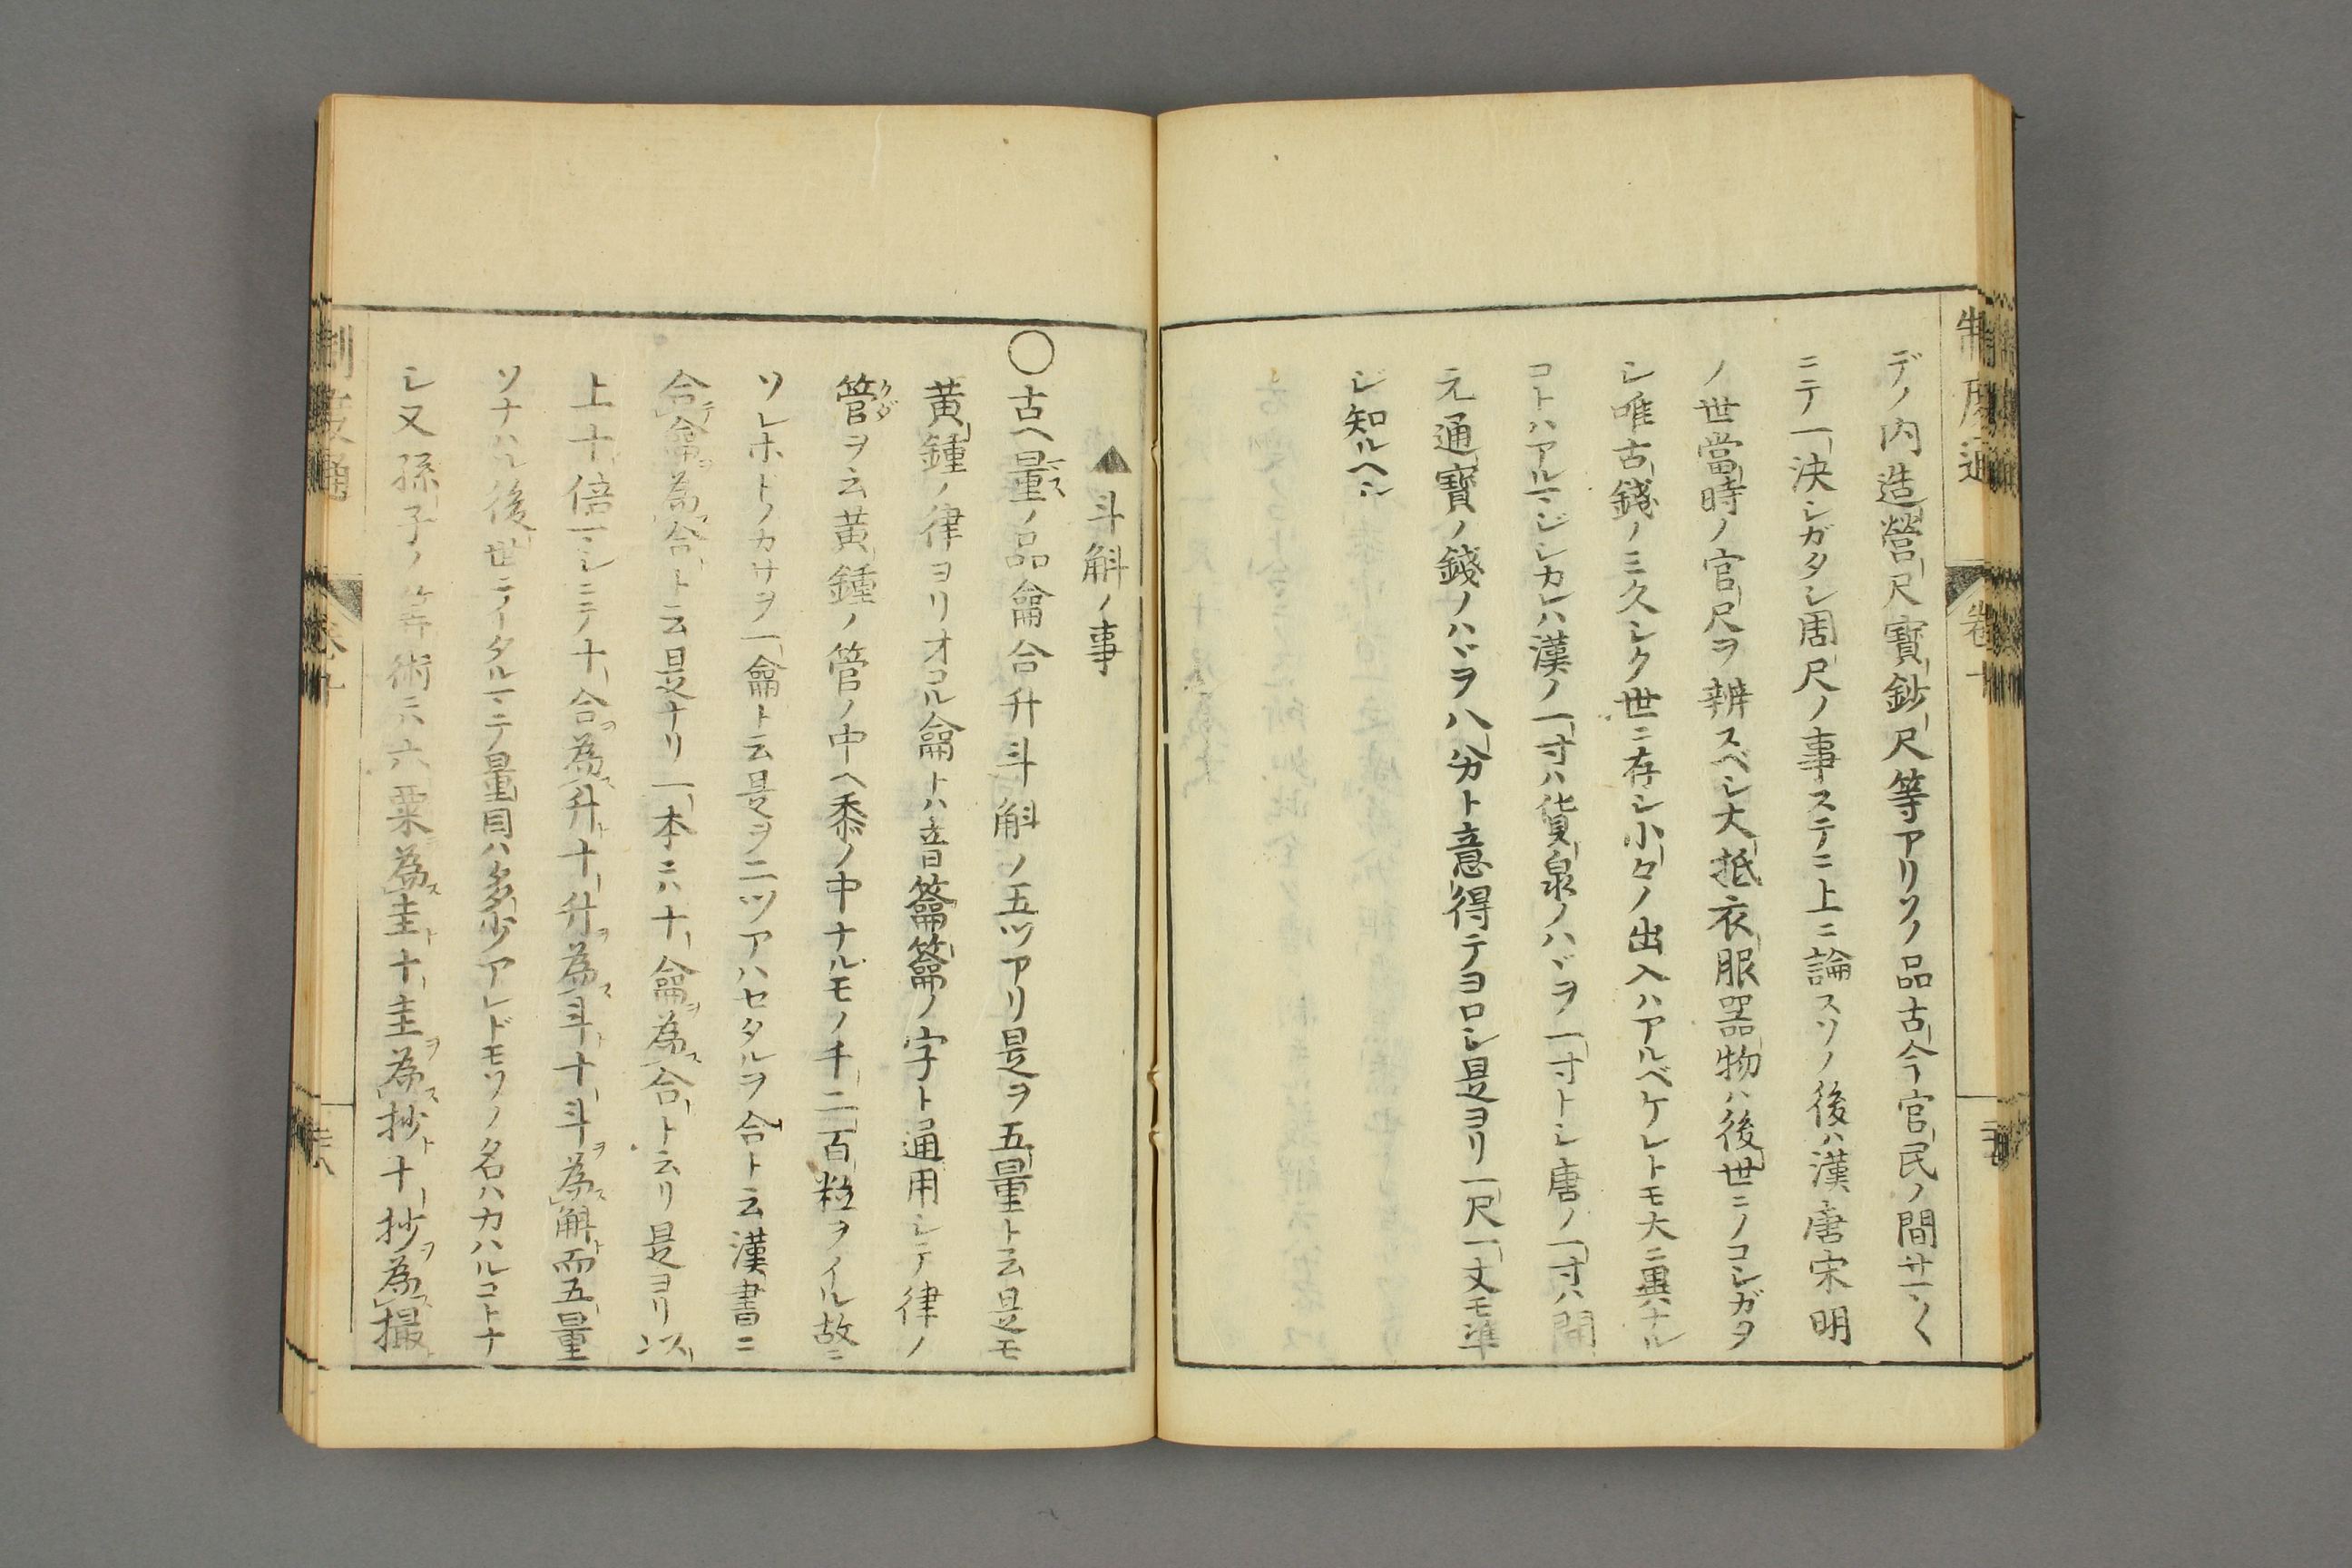 デノ内造營尺寶鈔尺等アリソノ品古今官民ノ間サマ〱
ニテ一決シガタシ周尺ノ事ステニ上ニ論スソノ後ハ漢唐宋明
ノ世當時ノ官尺ヲ辨スベシ大抵衣服器物ハ後世ニノコシガタ
シ唯古錢ノミ久シク世ニ存シ小々ノ出入ハアルベケレトモ大ニ異ナル
コトハアルマジシカレハ漢ノ一寸ハ貨泉ノハヾヲ一寸トシ唐ノ一寸ハ開
元通寶ノ錢ノハヾヲ八分ト意得テヨロシ是ヨリ一尺一丈モ準
ジ知ルヘシ
▲斗斛ノ事
〇古ヘ量ノ品龠合升斗斛ノ五ツアリ是ヲ五量ト云是モ
黄鍾ノ律ヨリオコル龠トハ音籥籥ノ字ト通用シテ律ノ
管ヲ云黄鍾ノ管ノ中ヘ黍ノ中ナルモノ千二百粒ヲイル故ニ
ソレホドノカサヲ一龠ト云是ヲ二ツアハセタルヲ合ト云漢書ニ
合龠為合ト云是ナリ一本ニハ十龠為合ト云リ是ヨリ以
上十倍マシニテ十合為升十升為斗十斗為斛而五量
ソナハル後世ニイタルマテ量目ハ多少アレドモソノ名ハカハルコトナ
シ又孫子ノ筭術ニハ六粟為圭十圭為抄十抄為撮
制度通
卷十